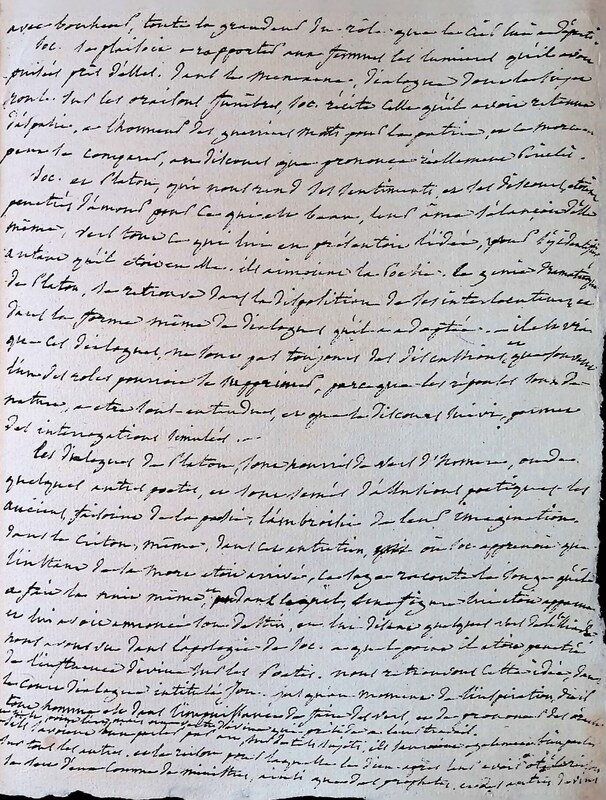 avec bonheur, toute la grandeur du rôle que le ciel lui a départi
Soc. se plaisoit a rapporter aux femmes les lumieres qu'il avoit
puisées près d'elles. dans le Menexene, dialogue dont le sujet
roule sur les oraisons funèbres, Soc. récite celle qu'il avoit retenue
d'aspasie, a l'honneur des guerriers morts pour la patrie, et ce morceau
peut se comparer, au discours que prononca réellement Periclès.
Soc. et Platon, qui nous rend ses sentiments et ses discours, étoient
penetrés d'amour pour ce qui est beau, leur ame s'élancoit d'elle
même, vers tout ce qui lui en présentoit l'idée, pour s'y identifier
autant qu'il etoit en elle. ils aimoient la Poesie. Le genie dramatique
de Platon, se retrouve dans la disposition de ses interlocuteurs, et
dans la forme même de dialogues qu'il a adoptée. — il est vrai
que ces dialogues, ne sont pas toujours des discussions, et que souvent
l'un des roles pourroit se supprimer, parce que les réponses sont de
nature, a etre sous-entendues, et que le discours suivi, permet
des interrogations simulées. —
Les dialogues de Platon, sont nourris de vers d'Homere, ou de
quelques autres poetes, et sont semés d'allusions poetiques. les
anciens, faisoient de la poesie, l'ambroisie de leur imagination.
dans le Criton, même, dans cet entretien, où Soc. apprenoit que
l'instant de la mort etoit arrivé, ce sage raconte le songe qu'il
a fait la nuit même, pendant lequel, une figure lui etoit apparue
et lui avoit annoncé son destin, en lui disant quelques vers de l'Iliade
nous avons vu dans l'apologie de Soc. a quel point il etoit penetré
de l'influence divine sur les Poetes. nous retrouvons cette idée, dans
le Court dialogue intitulé Ion. jusqu'au moment de l'inspiration, dit il
tout homme est dans l'impuissance de faire des vers, et de prononcer des oracles
sur tous les autres, et la raison pour laquelle le dieu après leur avoir oté la raison
se sert d'eux comme de ministres, ainsi que des prophetes, et des autres devins